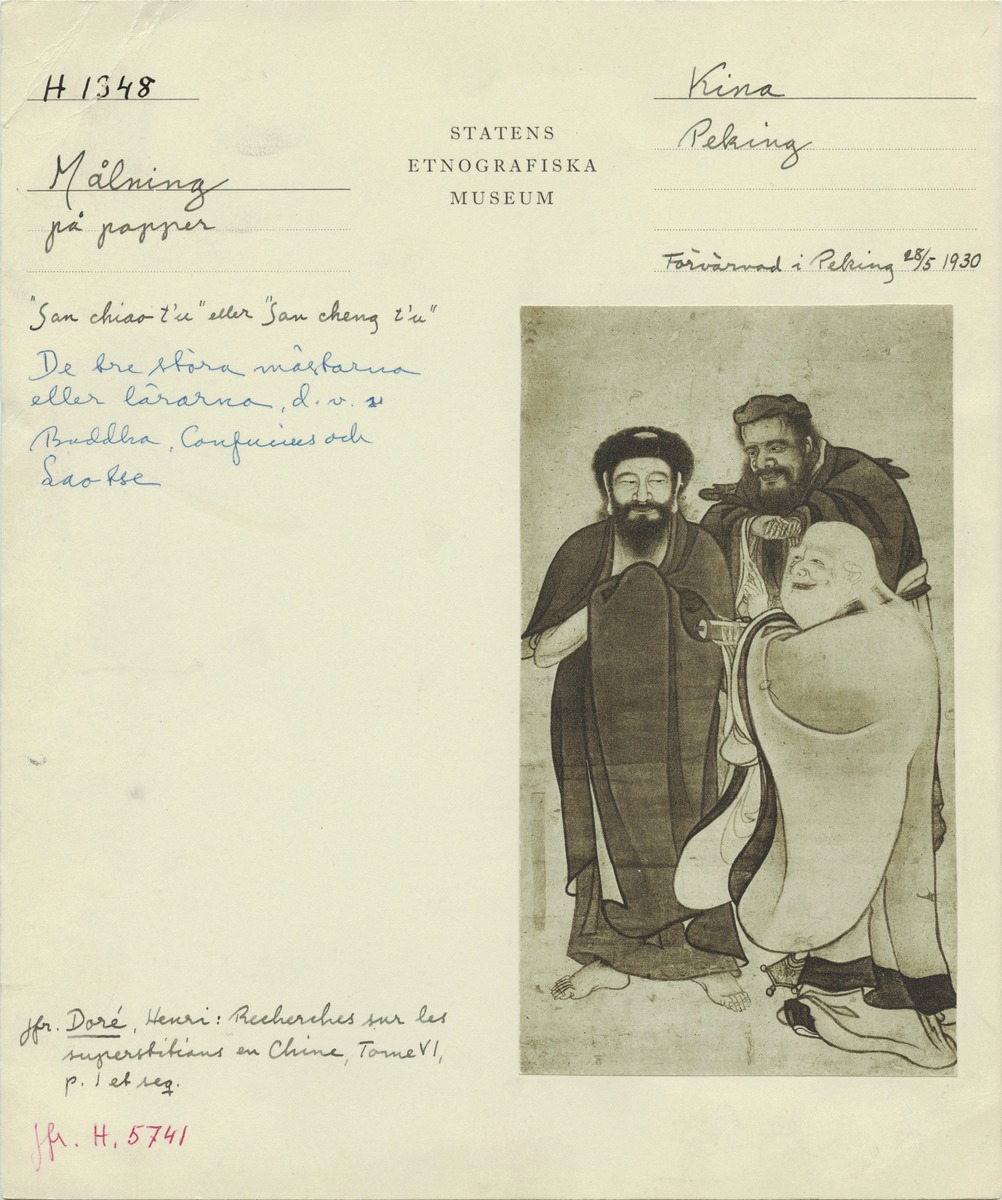 H 1348
Målning
på papper
STATENS
ETNOGRAFISKA
MUSEUM
Kina
Peking
Förvärvad i Peking 28/5 1930
"San chiao t'u" eller "San cheng t'u"
De tre stora mästarna
eller lärarna, d. v. s
Buddha, Confucius och
Lao tse
jfr. Doré, Henri: Recherches sur les
superstitions en Chine, Tome VI,
p. 1 et seq.
jfr. H. 5741